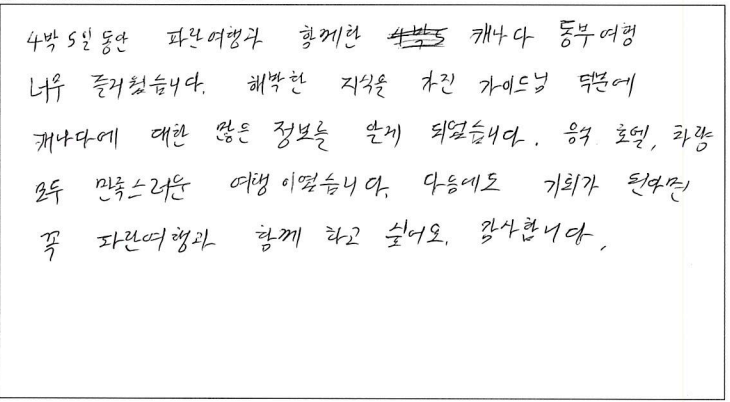 4박 5일 동안 파란여행과 함께한 캐나다 동부여행
너무 즐거웠습니다. 해박한 지식을 가진 가이드님 덕분에
캐나다에 대한 많은 정보를 알게 되었습니다. 음식, 호텔, 차량
모두 만족스러운 여행이였습니다. 다음에도 기회가 된다면
꼭 파란여행과 함께 하고 싶어요. 감사합니다.